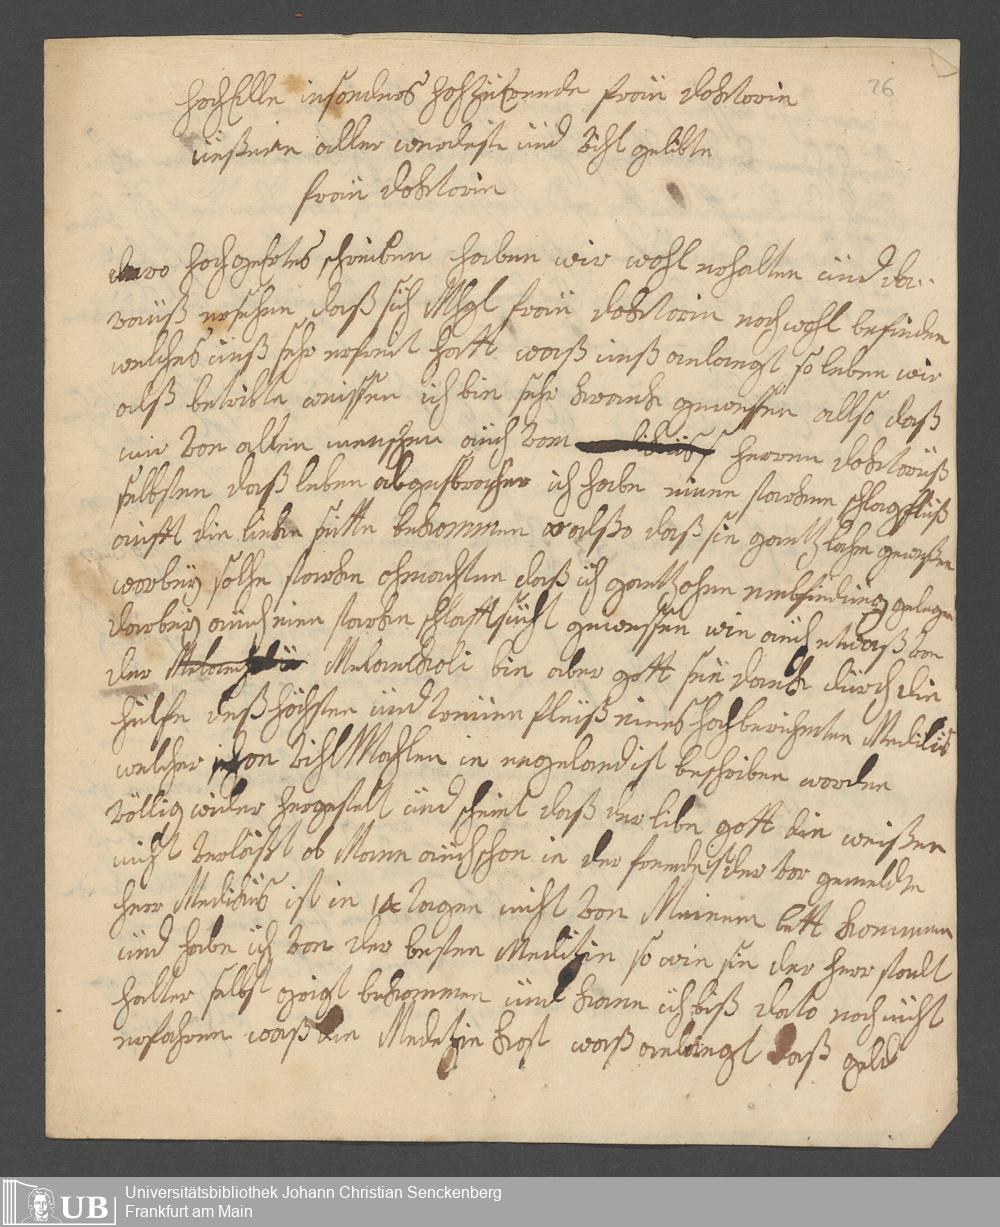 26
hochElle insonders hochzuErende frau doktorin
unßere aller werdeste und vihl gelibte
frau doktorin
dero hochgehrtes schreiben haben wir wohl erhalten und da-
rauß ersehen daß sich Mhgl frau doktorin noch wohl befinden
welches unß sehr erfreit hatt waß unß anlangt so leben wir
alß betribte weissen ich bin sehr krank gewessen allso daß
mir von allen menschen auch vom herren doktoriß
selbsten daß leben abgesbrochen ich habe einen starken schlagfluß
auff die linke seitte bekommen alßo daß sie gantz lahm geweßen
worbey solche starke ohnmachten daß ich gantz ohne embfindung gelegen
darbey auch eine starke schlaffsucht gewessen wie auch etwaß von
der Melanckoli bin aber gott sei dank durch die
hülfe deß höchsten und treuen fleiß eines hochberühmten Medikus
welcher schon vihl Mahlen in engeland ist beschriben worden
völlig wider hergestelt und scheint daß der libe gott die weißen
nicht verläßt ob Mann auch schon in der fremde ist der vor gemeldte
herr Medikus ist in 14 tagen nicht von Meinem bett kommen
und habe ich von der besten Meditzin so wie sie der herr stadt
halter selbst geigt bekommen und kann ich biß dato noch nicht
erfahren waß die Medezin kost waß anlangt daß geld
Universitätsbibliothek Johann Christian Senckenberg
UB Frankfurt am Main